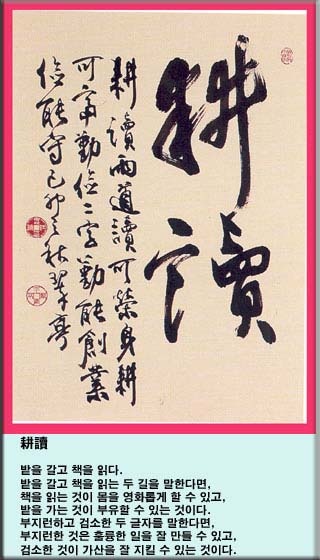 耕讀
耕讀兩道讀可榮身耕
可富勤儉二字勤能創業
儉能守己卯之秋翠亭
耕讀
받을 갈고 책을 읽다.
받을 갈고 책을 읽는 두 길을 말한다면,
책을 읽는 것이 몸을 영화롭게 할 수 있고,
받을 가는 것이 부유할 수 있는 것이다.
부지런하고 검소한 두 글자를 말한다면,
부지런한 것은 훌륭한 일을 잘 만들 수 있고,
검소한 것이 가산을 잘 지킬 수 있는 것이다.